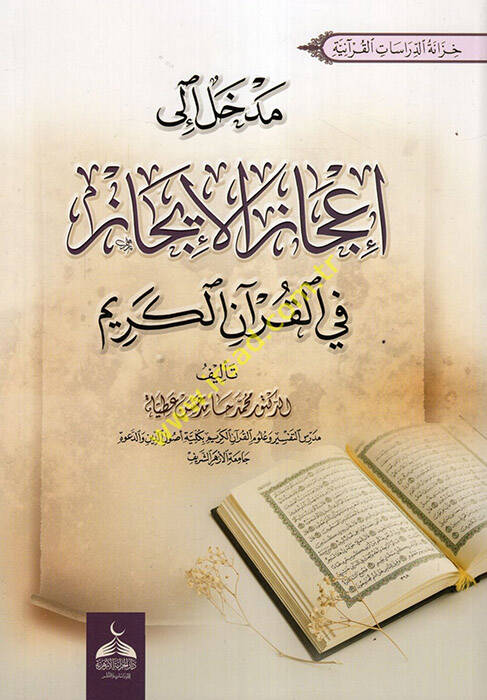 خِزَانَةُ الدِّرَاسَاتِ القُرْآنِيَّةِ
مَدْخَل إلى
إعْجَاز الإيجَاز
في القُرْآنِ الكَرِيم
تَأليفُ
الدكتور محمد حامد عطية
مدرس التفسير وعلوم القرآن الكريم بكلية أصول الدين والدعوة
جامعة الأزهر الشريف